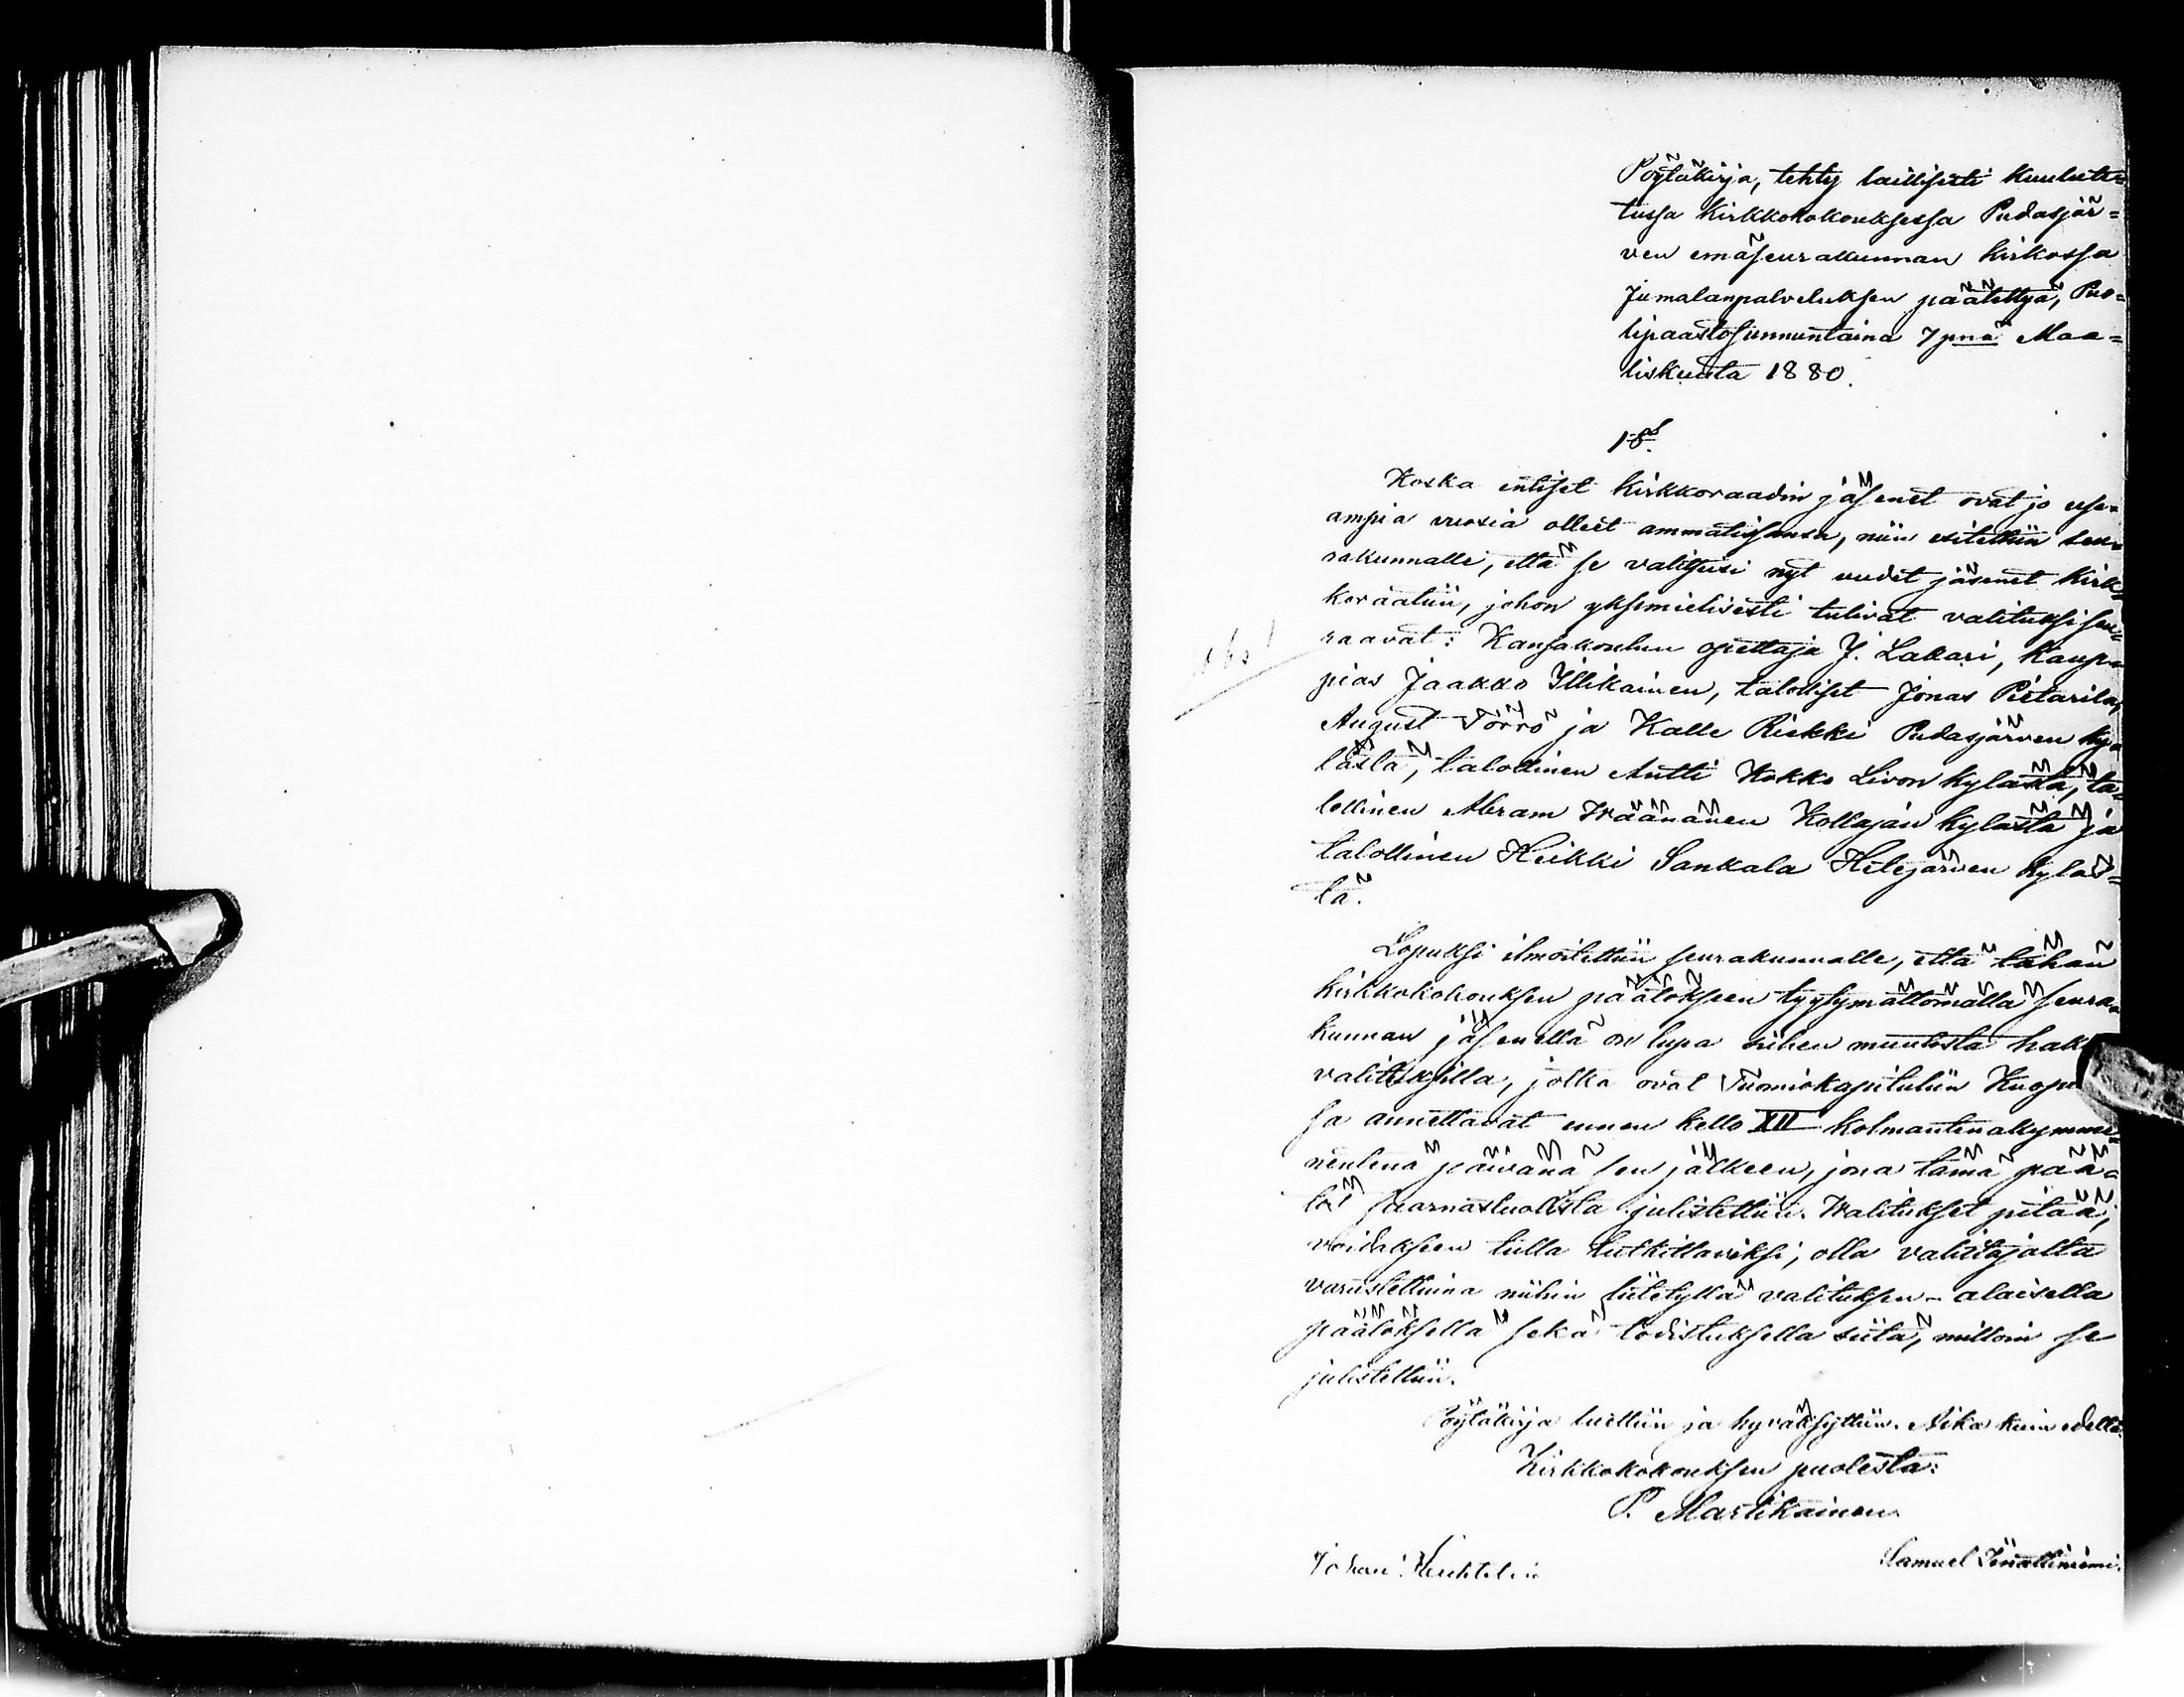 Pöytäkirja, tehty laillisesti kuulute-
tussa Kirkkokokouksessa Pudasjär-
ven emäseurakunnan kirkossa
Jumalanpalveluksen päätettyä, Puo-
lipaastosunnuntaina 7 pnä Maa-
liskuuta 1880.
1 §.
Koska entiset kirkkoraadin jäsenet ovat jo use-
ampia vuosia olleet ammatissansa, niin esitettiin seu-
rakunnalle, että se valitsisi nyt uudet jäsenet Kirk-
koraatiin, johon yksimielisesti tulivat valituksi seu-
raavat: Kansakoulun opettaja J. Lakari, Kaup-
obs!
pias Jaakko Illikainen, talolliset Jonas Pietarila,
August Törrö ja Kalle Riekki Pudasjärven ky-
lästä, talollinen Antti Kokko Livon kylästä, ta-
lollinen Abram Wäänänen Kollajan kylästä ja
talollinen Heikki Sankala Hetejärven kyläs-
tä.
Lopuksi ilmoitettiin seurakunnalle, että tähän
kirkkokokouksen päätökseen tyytymättömällä seura-
kunnan jäsenellä on lupa siihen muutosta hak
valituksilla, jotka ovat Tuomiokapituliin Kuopi
sa annettavat ennen kello XII kolmantenakymme-
nentenä päivänä sen jälkeen, jona tämä pää-
tös saarnastuolista julistettiin. Walitukset pitää,
voidakseen tulla tutkittaviksi, olla valittajalta
varustettuina niihin liitetyllä valituksen-alaisella
päätöksellä sekä todistuksella siitä, milloin se
julistettiin.
Pöytäkirja luettiin ja hyväksyttiin. Aika kuin edellä.
Kirkkokokouksen puolesta:
P. Martikainen
Samuel